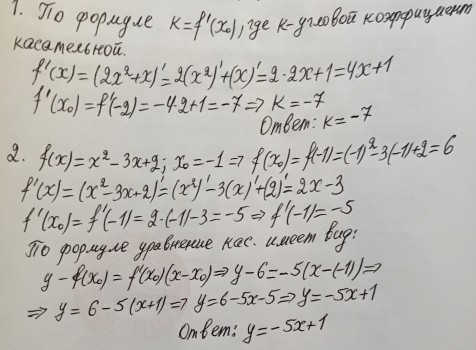 1. По формуле k=f'(x₀), где k-угловой коэффициент
касательной.
f'(x)=(2x²+x)'=2(x²)'+(x)'=2·2x+1=4x+1
f'(x₀)=f'(-2)=-4·2+1=-7⇒ k=-7
Ответ: k=-7
2. f(x)=x²-3x+2; x₀=-1⇒ f(x₀)=f(-1)=(-1)²-3(-1)+2=6
f'(x)=(x²-3x+2)'=(x²)'-3(x)'+(2)'=2x-3
f'(x₀)=f'(-1)=2·(-1)-3=-5⇒ f'(-1)=-5
По формуле уравнение кас. имеет вид:
y-f(x₀)=f'(x₀)(x-x₀)⇒y-6=-5(x-(-1))⇒
⇒ y=6-5(x+1)⇒ y=6-5x-5⇒ y=-5x+1
Ответ: y=-5x+1